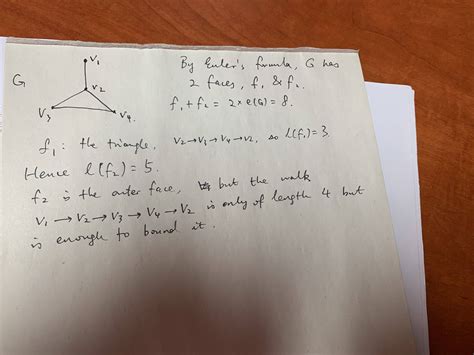 G
V₁
V₂
V₃
V₄.
By Euler's formula, G has
2 faces, f₁ & f₂.
f₁ + f₂ = 2 × e(G) = 8.
f₁ : the triangle, V₂→V₃→V₄→V₂, so l(f₁) = 3.
Hence l(f₂) = 5.
f₂ is the outer face, but the walk
V₁ → V₂ → V₃ → V₄ → V₂ is only of length 4 but
is enough to bound it.